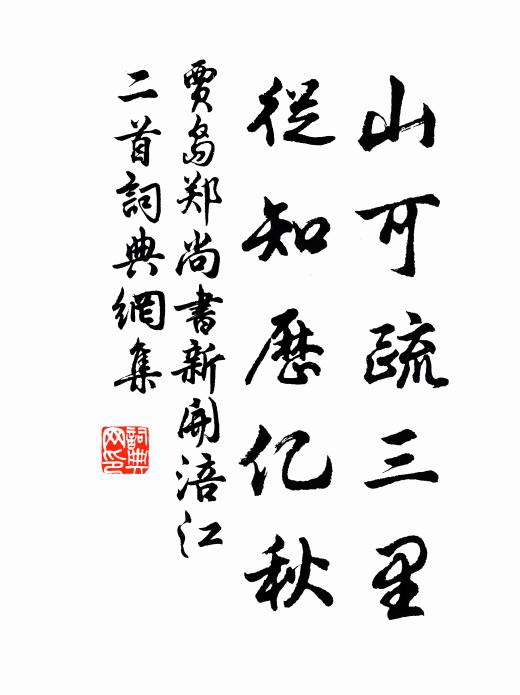 山可疏三里
從知歷亿秋
賈島郑尚書新開涪江
二首詞典網集
詞典
网印